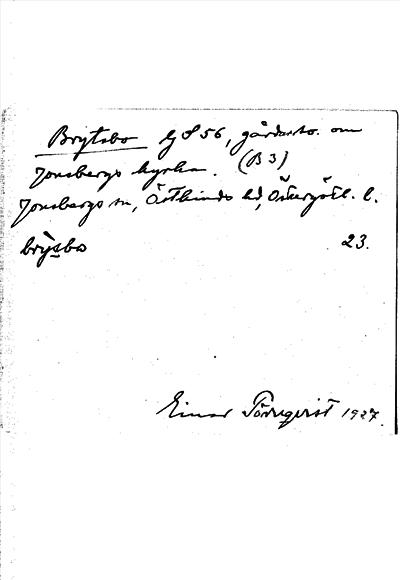 Brytsbo Gds 56, gårdarto. om
Jonsbergs kyrka. (B3)
Jonsbergs sn, Östkinds hd, Östergötl. l.
brỳsbo 23.
Einar Törnqvist 1927.